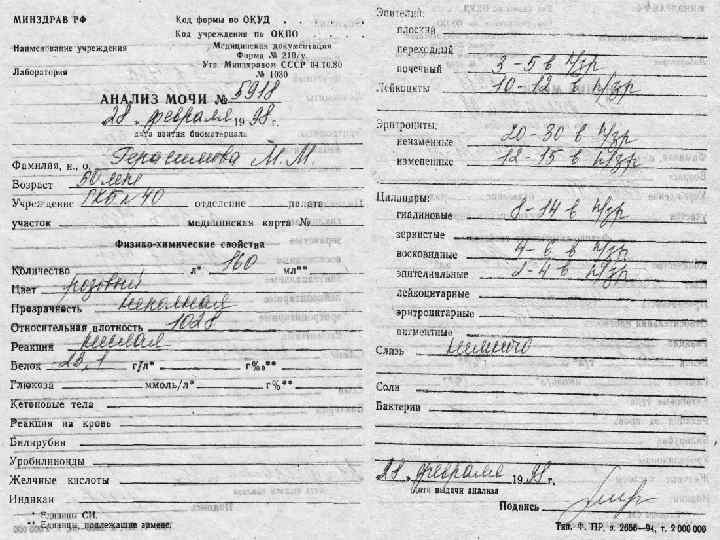 МИНЗДРАВ РФ
Код формы по ОКУД . . . . . .
Код учреждения по ОКПО . . . . . .
Наименование учреждения
Медицинская документация
Форма № 210/у
Лаборатория
Утв. Минздравом СССР 04.10.80
№ 1030
АНАЛИЗ МОЧИ № 5918
28 . февраля 1998 г.
дата взятия биоматериала
Фамилия, и., о. Герасимова М. М.
Возраст 60 лет
Учреждение ГКБ № 40 отделение палата
участок медицинская карта №
Физико-химические свойства
Количество л* 160 мл**
Цвет розовый
Прозрачность неполная
Относительная плотность 1028
Реакция кислая
Белок 23,1 г/л* г%о**
Глюкоза ммоль/л* г%**
Кетоновые тела
Реакция на кровь
Билирубин
Уробилиноиды
Желчные кислоты
Индикан
* Единицы СИ.
** Единицы, подлежащие замене.
Эпителий:
плоский
переходный
почечный 3-5 в п/зр
Лейкоциты 10-12 в п/зр
Эритроциты:
неизменные 20-30 в п/зр
измененные 12-15 в п/зр
Цилиндры:
гиалиновые 8-14 в п/зр
зернистые
восковидные 4-6 в п/зр
эпителиальные 2-4 в п/зр
лейкоцитарные
эритроцитарные
пигментные
Слизь немного
Соли
Бактерии
28 . февраля 1998 г.
дата выдачи анализа
Подпись
Тип. Ф. ПР, з. 2656—94, т. 2 000 000